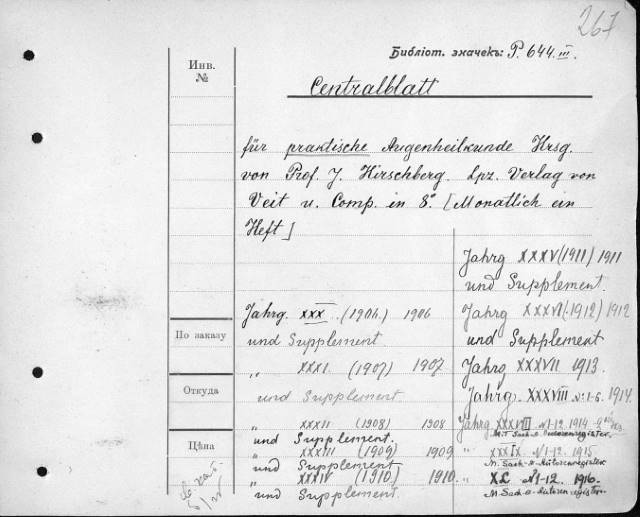 267
Библіот. значекъ: P. 644.III.
Инв.
№
Centralblatt
für praktische Augenheilkunde Hrsg.
von Prof. J. Hirschberg. Lpz. Verlag von
Veit u. Comp. in 8°. [Monatlich ein
Heft]
Jahrg. XXX. (1906.) 1906
und Supplement.
По заказу
" XXXI. (1907) 1907
und Supplement
Откуда
" XXXII (1908) 1908
und Supplement.
Цѣна
" XXXIII (1909) 1909
und Supplement
" XXXIV (1910.) 1910.
und Supplement.
Jahrg XXXV (1911) 1911
und Supplement.
Jahrg XXXVI (1912) 1912
und Supplement
Jahrg XXXVII 1913.
Jahrg. XXXVIII №1-6. 1914.
Jahrg. XXXVIII №1-12. 1914.
M.T. Sach-u. Autorenregister.
" XXXIX №1-12. 1915
M. Sach-u-Autorenregister
" XL №1-12. 1916.
M. Sach-u. Autoren register.